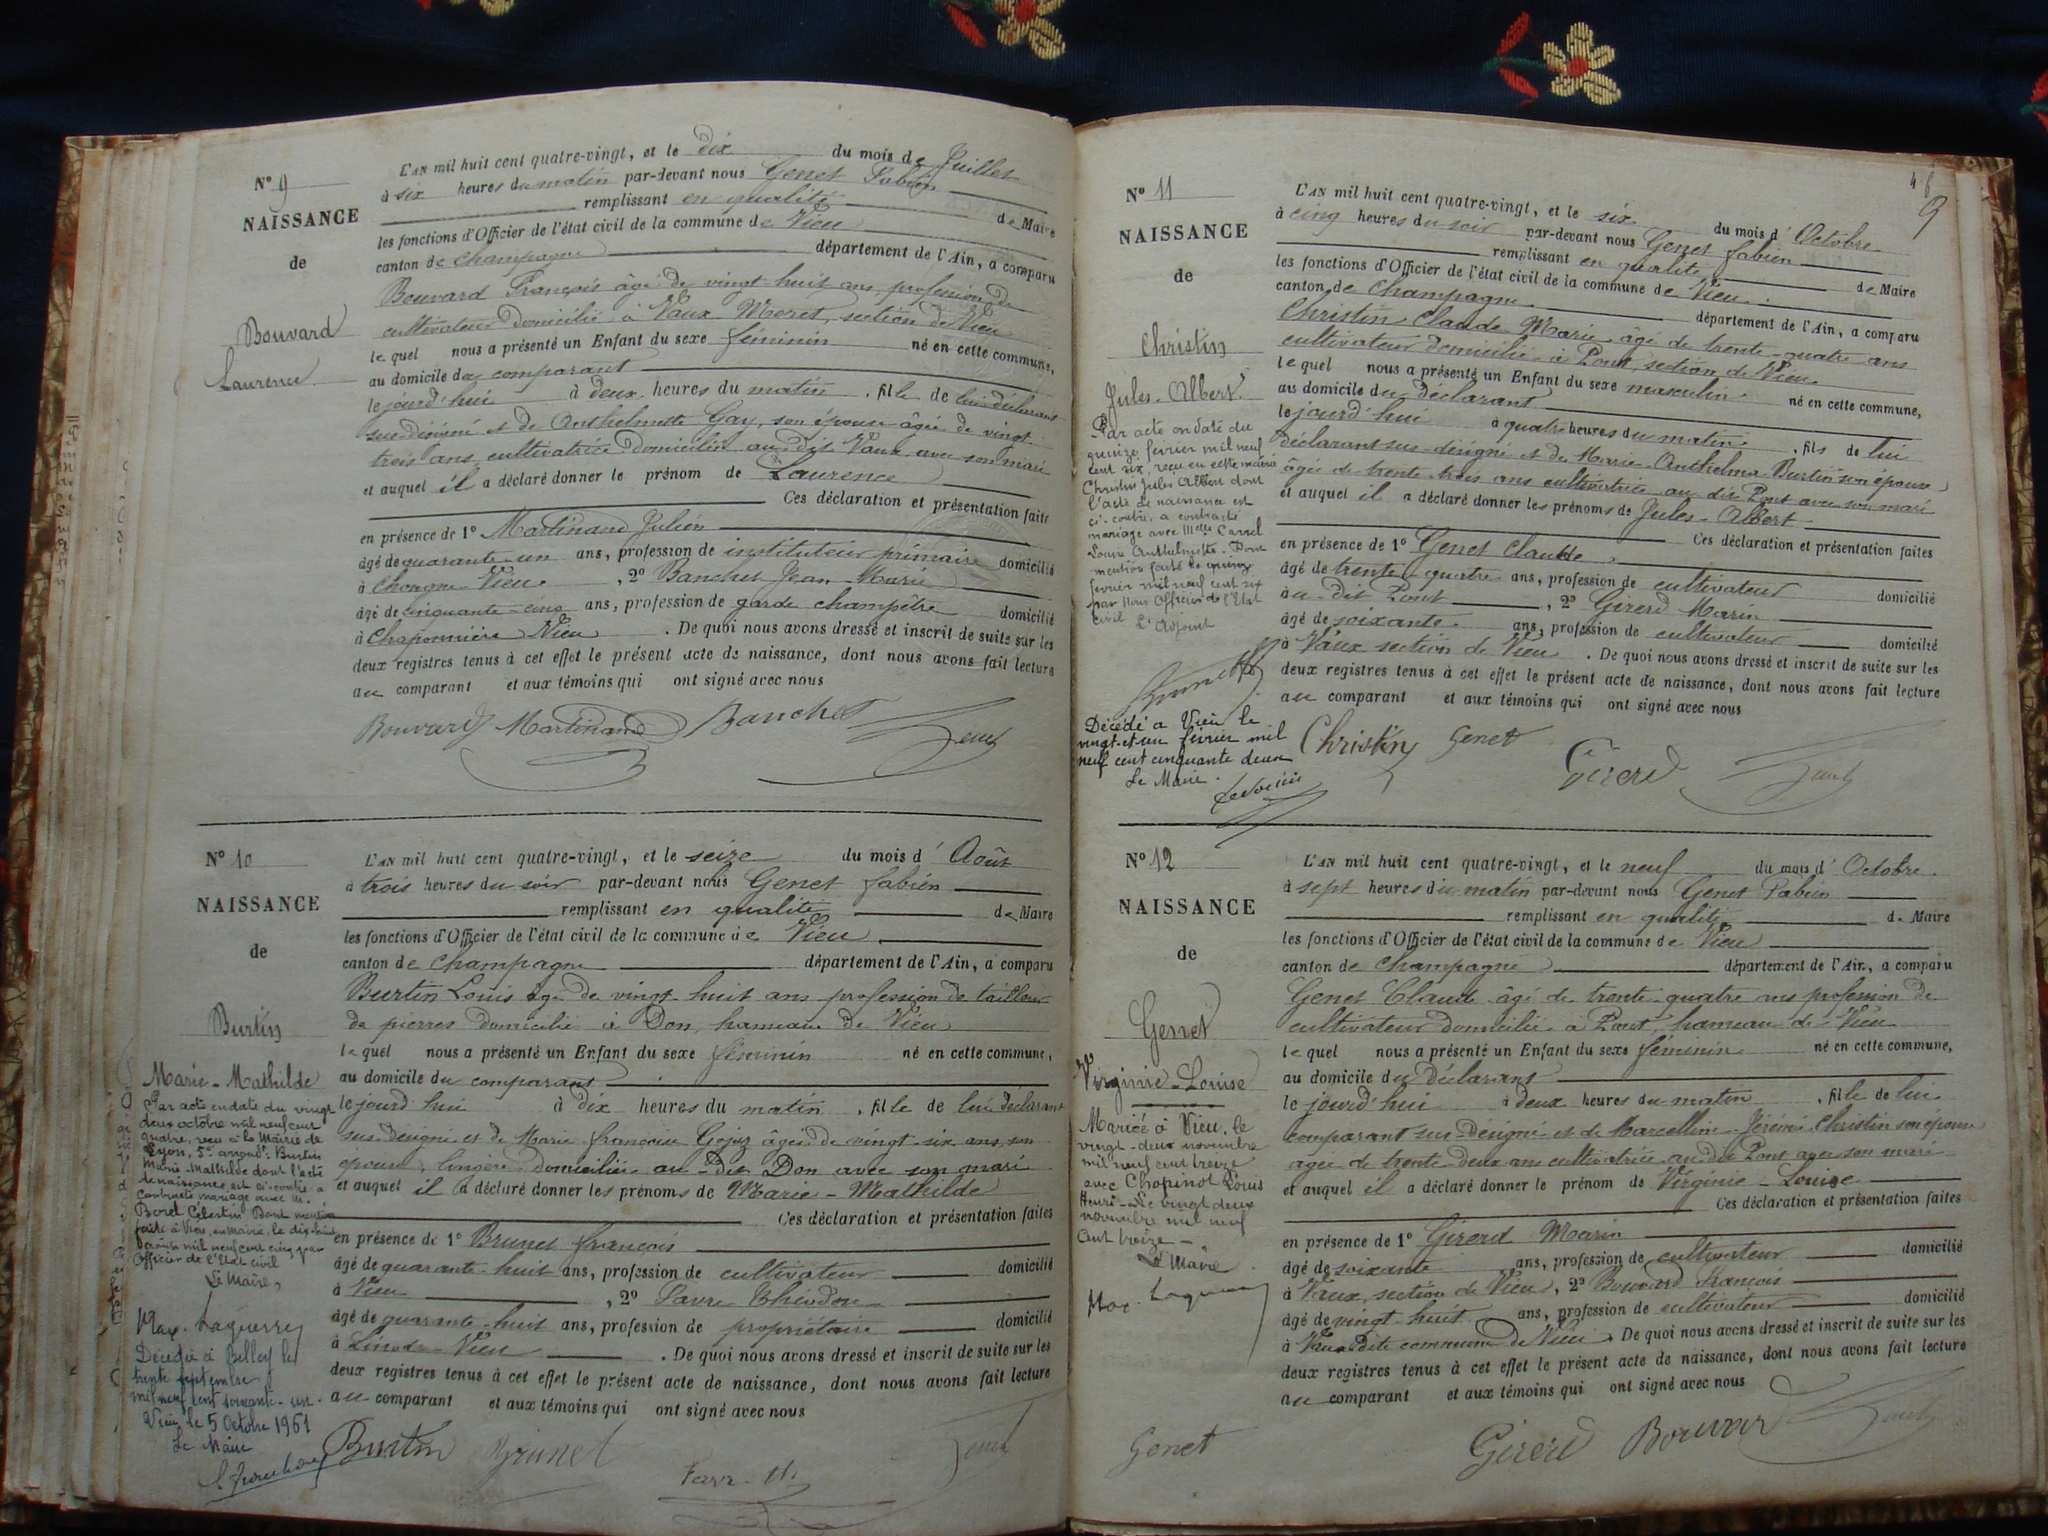 Nº 9
NAISSANCE
de
Bouvard
Laurence
L'AN mil huit cent quatre-vingt, et le dix du mois de Juillet
à six heures du matin par-devant nous Genet Fabien
remplissant en qualité de Maire
les fonctions d'Officier de l'état civil de la commune de Vieu
canton de Champagne département de l'Ain, a comparu
Bouvard François âgé de vingt-huit ans, profession de
cultivateur domicilié à Vaux-Moret, section de Vieu
lequel nous a présenté un Enfant du sexe féminin né en cette commune,
au domicile du comparant
le jourd'hui à deux heures du matin, fille de lui déclarant
sus-désigné et de Anthelmette Gay, son épouse âgée de vingt
trois ans cultivatrice domiciliée au dit Vaux avec son mari
et auquel il a déclaré donner le prénom de Laurence
Ces déclaration et présentation faite
en présence de 1º Martinand Julien
âgé de quarante-un ans, profession de instituteur primaire domicilié
à Chongne Vieu, 2º Banchet Jean-Marie
âgé de cinquante-cinq ans, profession de garde champêtre domicilié
à Chaponnière Vieu. De quoi nous avons dressé et inscrit de suite sur les
deux registres tenus à cet effet le présent acte de naissance, dont nous avons fait lecture
au comparant et aux témoins qui ont signé avec nous
Bouvard Martinand Banchet Genet
Nº 10
NAISSANCE
de
Burtin
Marie-Mathilde
Par acte en date du vingt
deux octobre mil neuf cent
quatre, reçu à la Mairie de
Lyon, 5e arrondt. Burtin
Marie-Mathilde dont l'acte
de naissance est ci-contre a
contracté mariage avec M.
Boret Célestin Dont mention
faite à Vieu, en mairie, le dix-huit
mil neuf cent cinq par
Officier de l'Etat civil
Le Maire,
Laguerre
Décédée à Belley le
trente septembre
mil neuf cent soixante-un
Vieu le 5 Octobre 1961
Le Maire
L'AN mil huit cent quatre-vingt, et le seize du mois d'Août
à trois heures du soir par-devant nous Genet Fabien
remplissant en qualité de Maire
les fonctions d'Officier de l'état civil de la commune de Vieu
canton de Champagne département de l'Ain, a comparu
Burtin Louis âgé de vingt-huit ans profession de tailleur
de pierres domicilié à Don, hameau de Vieu
lequel nous a présenté un Enfant du sexe féminin né en cette commune,
au domicile du comparant
le jourd'hui à dix heures du matin, fille de lui déclarant
sus-désigné et de Marie françoise Gojoz âgée de vingt-six ans, son
épouse, lingère domiciliée au dit Don avec son mari
et auquel il a déclaré donner les prénoms de Marie-Mathilde
Ces déclaration et présentation faites
en présence de 1º Brunet françois
âgé de quarante-huit ans, profession de cultivateur domicilié
à Vieu, 2º Favre Théodore
âgé de quarante-huit ans, profession de propriétaire domicilié
à Linod Vieu. De quoi nous avons dressé et inscrit de suite sur les
deux registres tenus à cet effet le présent acte de naissance, dont nous avons fait lecture
au comparant et aux témoins qui ont signé avec nous
Burtin Brunet Genet
Favre Th.
9
Nº 11
NAISSANCE
de
Christin
Jules-Albert
Par acte en date du
quinze février mil neuf
cent six, reçu en cette mairie
Christin Jules Albert dont
l'acte de naissance est
ci-contre, a contracté
mariage avec Melle Carrel
Louise Anthelmette. Dont
mention faite le quinze
février mil neuf cent six
par Nous Officier de l'Etat
civil L'Adjoint
Décédé à Vieu le
vingt-et-un février mil
neuf cent cinquante deux
Le Maire.
L'AN mil huit cent quatre-vingt, et le six du mois d'Octobre
à cinq heures du soir par-devant nous Genet fabien
remplissant en qualité de Maire
les fonctions d'Officier de l'état civil de la commune de Vieu
canton de Champagne département de l'Ain, a comparu
Christin Claude Marie âgé de trente-quatre ans
cultivateur domicilié à Pont, section de Vieu
lequel nous a présenté un Enfant du sexe masculin né en cette commune,
au domicile du déclarant
le jourd'hui à quatre heures du matin, fils de lui
déclarant sus-désigné et de Marie-Anthelma Burtin son épouse
âgée de trente-trois ans cultivatrice au dit Pont avec son mari
et auquel il a déclaré donner les prénoms de Jules-Albert
Ces déclaration et présentation faites
en présence de 1º Genet Claude
âgé de trente-quatre ans, profession de cultivateur domicilié
au dit Pont, 2º Girerd Marin
âgé de soixante ans, profession de cultivateur domicilié
à Vaux section de Vieu. De quoi nous avons dressé et inscrit de suite sur les
deux registres tenus à cet effet le présent acte de naissance, dont nous avons fait lecture
au comparant et aux témoins qui ont signé avec nous
Christin Genet Girerd Genet
Nº 12
NAISSANCE
de
Genet
Virginie-Louise
Mariée à Vieu, le
vingt-deux novembre
mil neuf cent treize
avec Chapinot Louis
Henri-Le vingt deux
novembre mil neuf
cent treize-
Le Maire
Laguerre
L'AN mil huit cent quatre-vingt, et le neuf du mois d'Octobre
à sept heures du matin par-devant nous Genet Fabien
remplissant en qualité de Maire
les fonctions d'Officier de l'état civil de la commune de Vieu
canton de Champagne département de l'Ain, a comparu
Genet Claude âgé de trente-quatre ans profession de
cultivateur domicilié à Pont, hameau de Vieu
lequel nous a présenté un Enfant du sexe féminin né en cette commune,
au domicile du déclarant
le jourd'hui à deux heures du matin, fille de lui
comparant sus-désigné et de Marcelline-Jérémie Christin son épouse
âgée de trente-deux ans cultivatrice au dit Pont avec son mari
et auquel il a déclaré donner le prénom de Virginie-Louise
Ces déclaration et présentation faites
en présence de 1º Girerd Marin
âgé de soixante ans, profession de cultivateur domicilié
à Vaux, section de Vieu, 2º Bouvard françois
âgé de vingt-huit ans, profession de cultivateur domicilié
à Vaux dite commune de Vieu. De quoi nous avons dressé et inscrit de suite sur les
deux registres tenus à cet effet le présent acte de naissance, dont nous avons fait lecture
au comparant et aux témoins qui ont signé avec nous
Genet Girerd Bouvard Genet